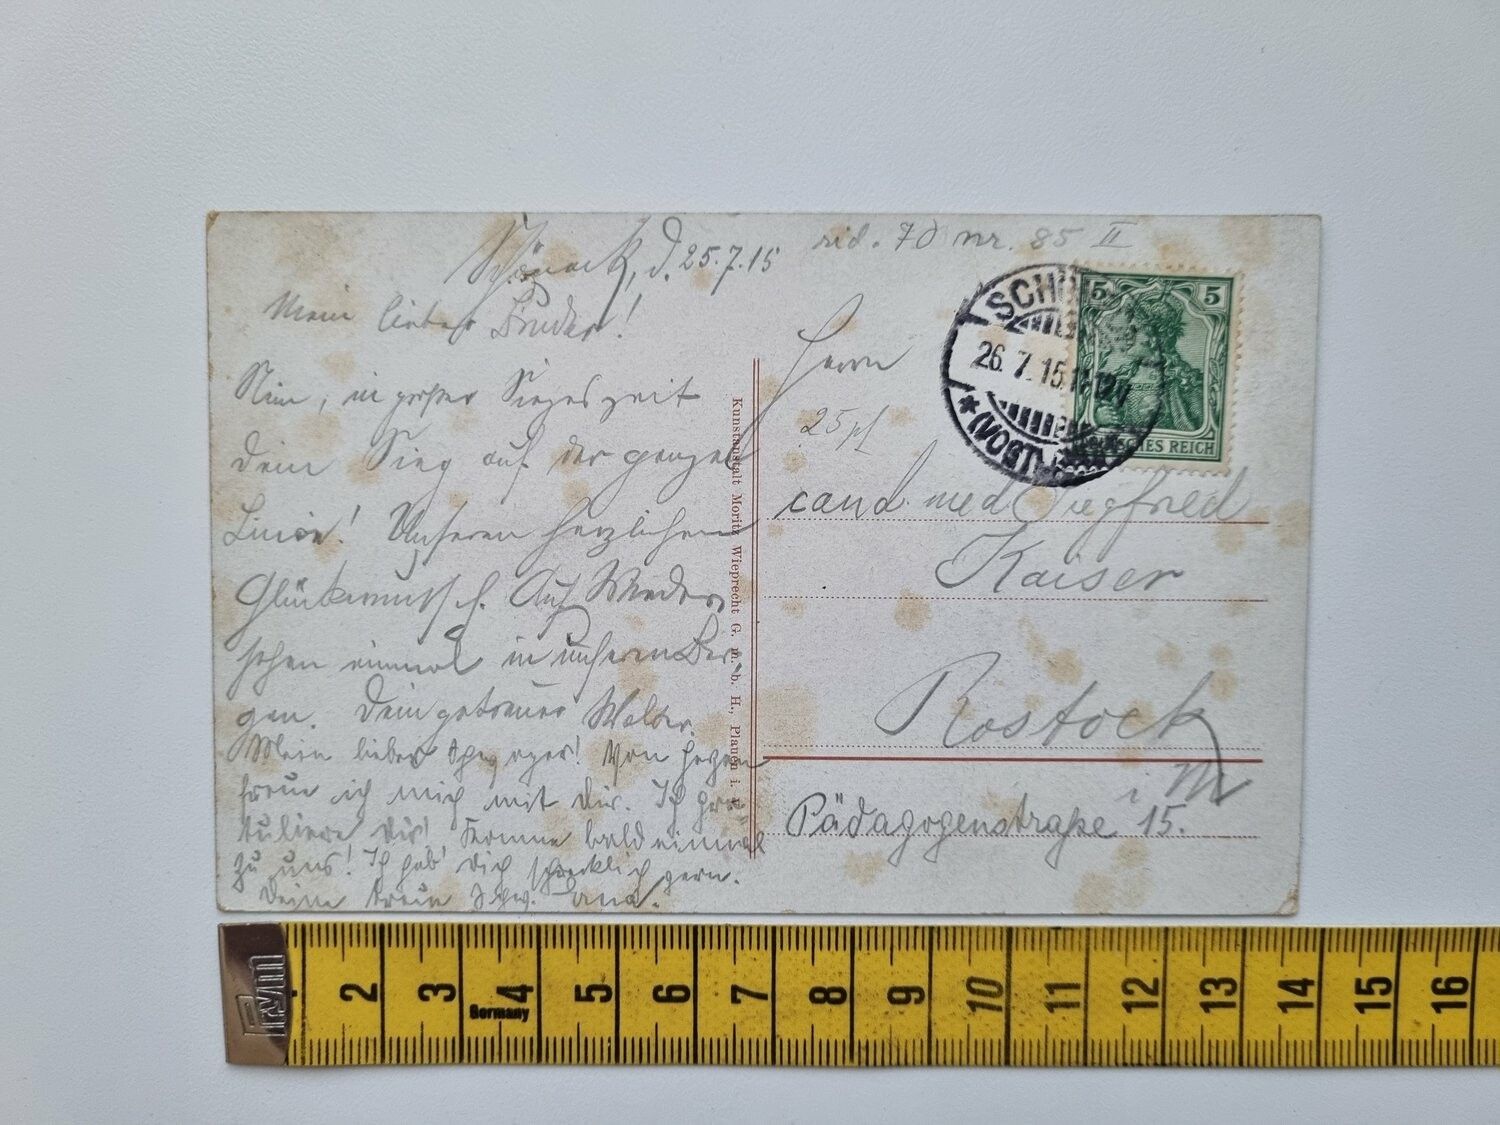 Schöneck, d. 25.7.15
rid. 70 nr. 85 II
Mein lieber Bruder!
Nun, in großer Siegeszeit
dein Sieg auf der ganzen
Linie! Unseren herzlichen
Glückwunsch. Auf Wieder-
sehen einmal in unseren Ber-
gen. Dein getreuer Walter.
Mein lieber Schwager! Von Herzen
freue ich mich mit Dir. Ich gra-
tuliere Dir! Komme bald einmal
zu uns! Ich hab' Dich schrecklich gern.
Deine treue Schw.
Kunstanstalt Moritz Wieprecht G. m. b. H., Plauen i. V.
5 5
DEUTSCHES REICH
SCHÖ
26.7.15.
(VOGTL.)
Herrn
25 pf
cand. med Siegfried
Kaiser
Rostock
i M
Pädagogenstraße 15.
2 3 4 5 6 7 8 9 10 11 12 13 14 15 16
Germany
Prym